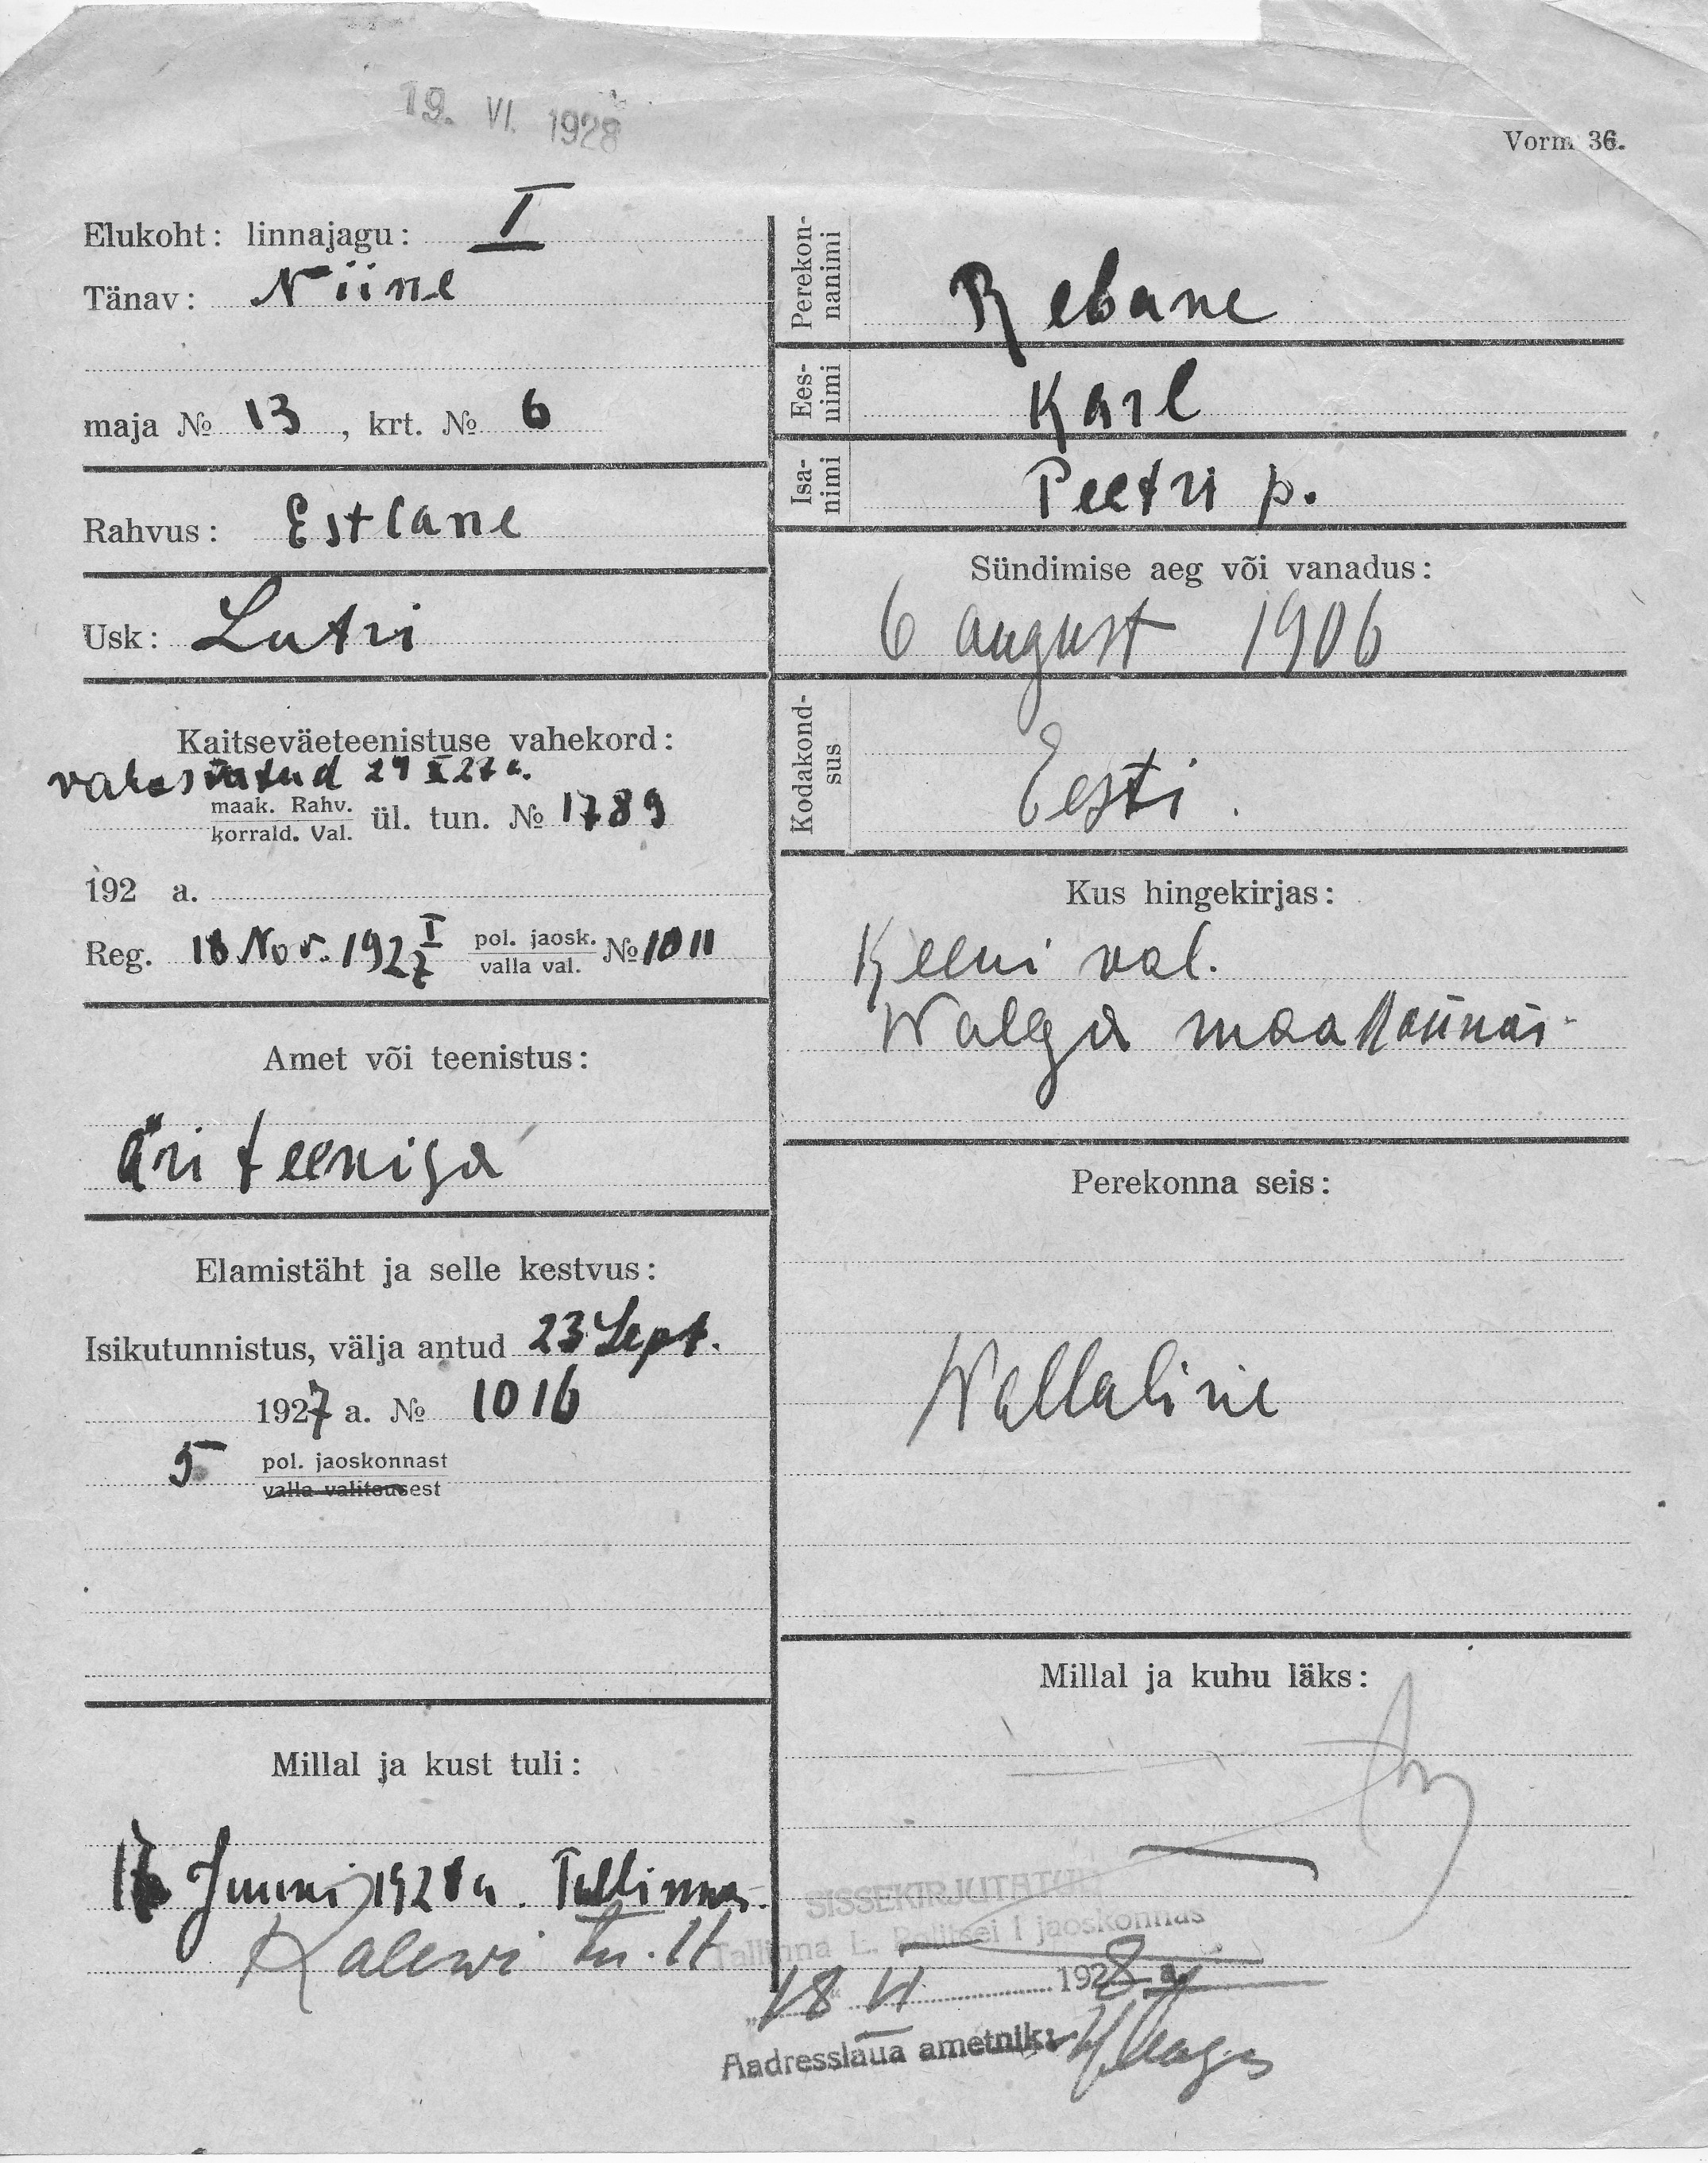 19. VI. 1928
Vorm 36.
Elukoht: linnajagu: I
Tänav: Niine
maja № 13, krt. № 6
Rahvus: Estlane
Usk: Lutri
Kaitseväeteenistuse vahekord:
24 X 27 a.
maak. Rahv.
korrald. Val. ül. tun. № 1789
192 a.
Reg. 18 Nov. 1927 I pol. jaosk. № 1011
valla val.
Amet või teenistus:
Äri teenija
Elamistäht ja selle kestvus:
Isikutunnistus, välja antud 23 Sept.
1927 a. № 1016
5 pol. jaoskonnast
valla valitsusest
Millal ja kust tuli:
Juuni 1928 a. Tallinnas.
Kalewi tn.
Perekon-
nanimi
Rebane
Ees-
nimi
Karl
Isa-
nimi
Peetri p.
Sündimise aeg või vanadus:
6 august 1906
Kodakond-
sus
Eesti.
Kus hingekirjas:
Keeni val.
Walga
Perekonna seis:
Wallaline
Millal ja kuhu läks:
SISSEKIRJUTATUD
Tallinna L. Politsei I jaoskonnas
18 VI 1928 a.
Aadresslaua ametnik: